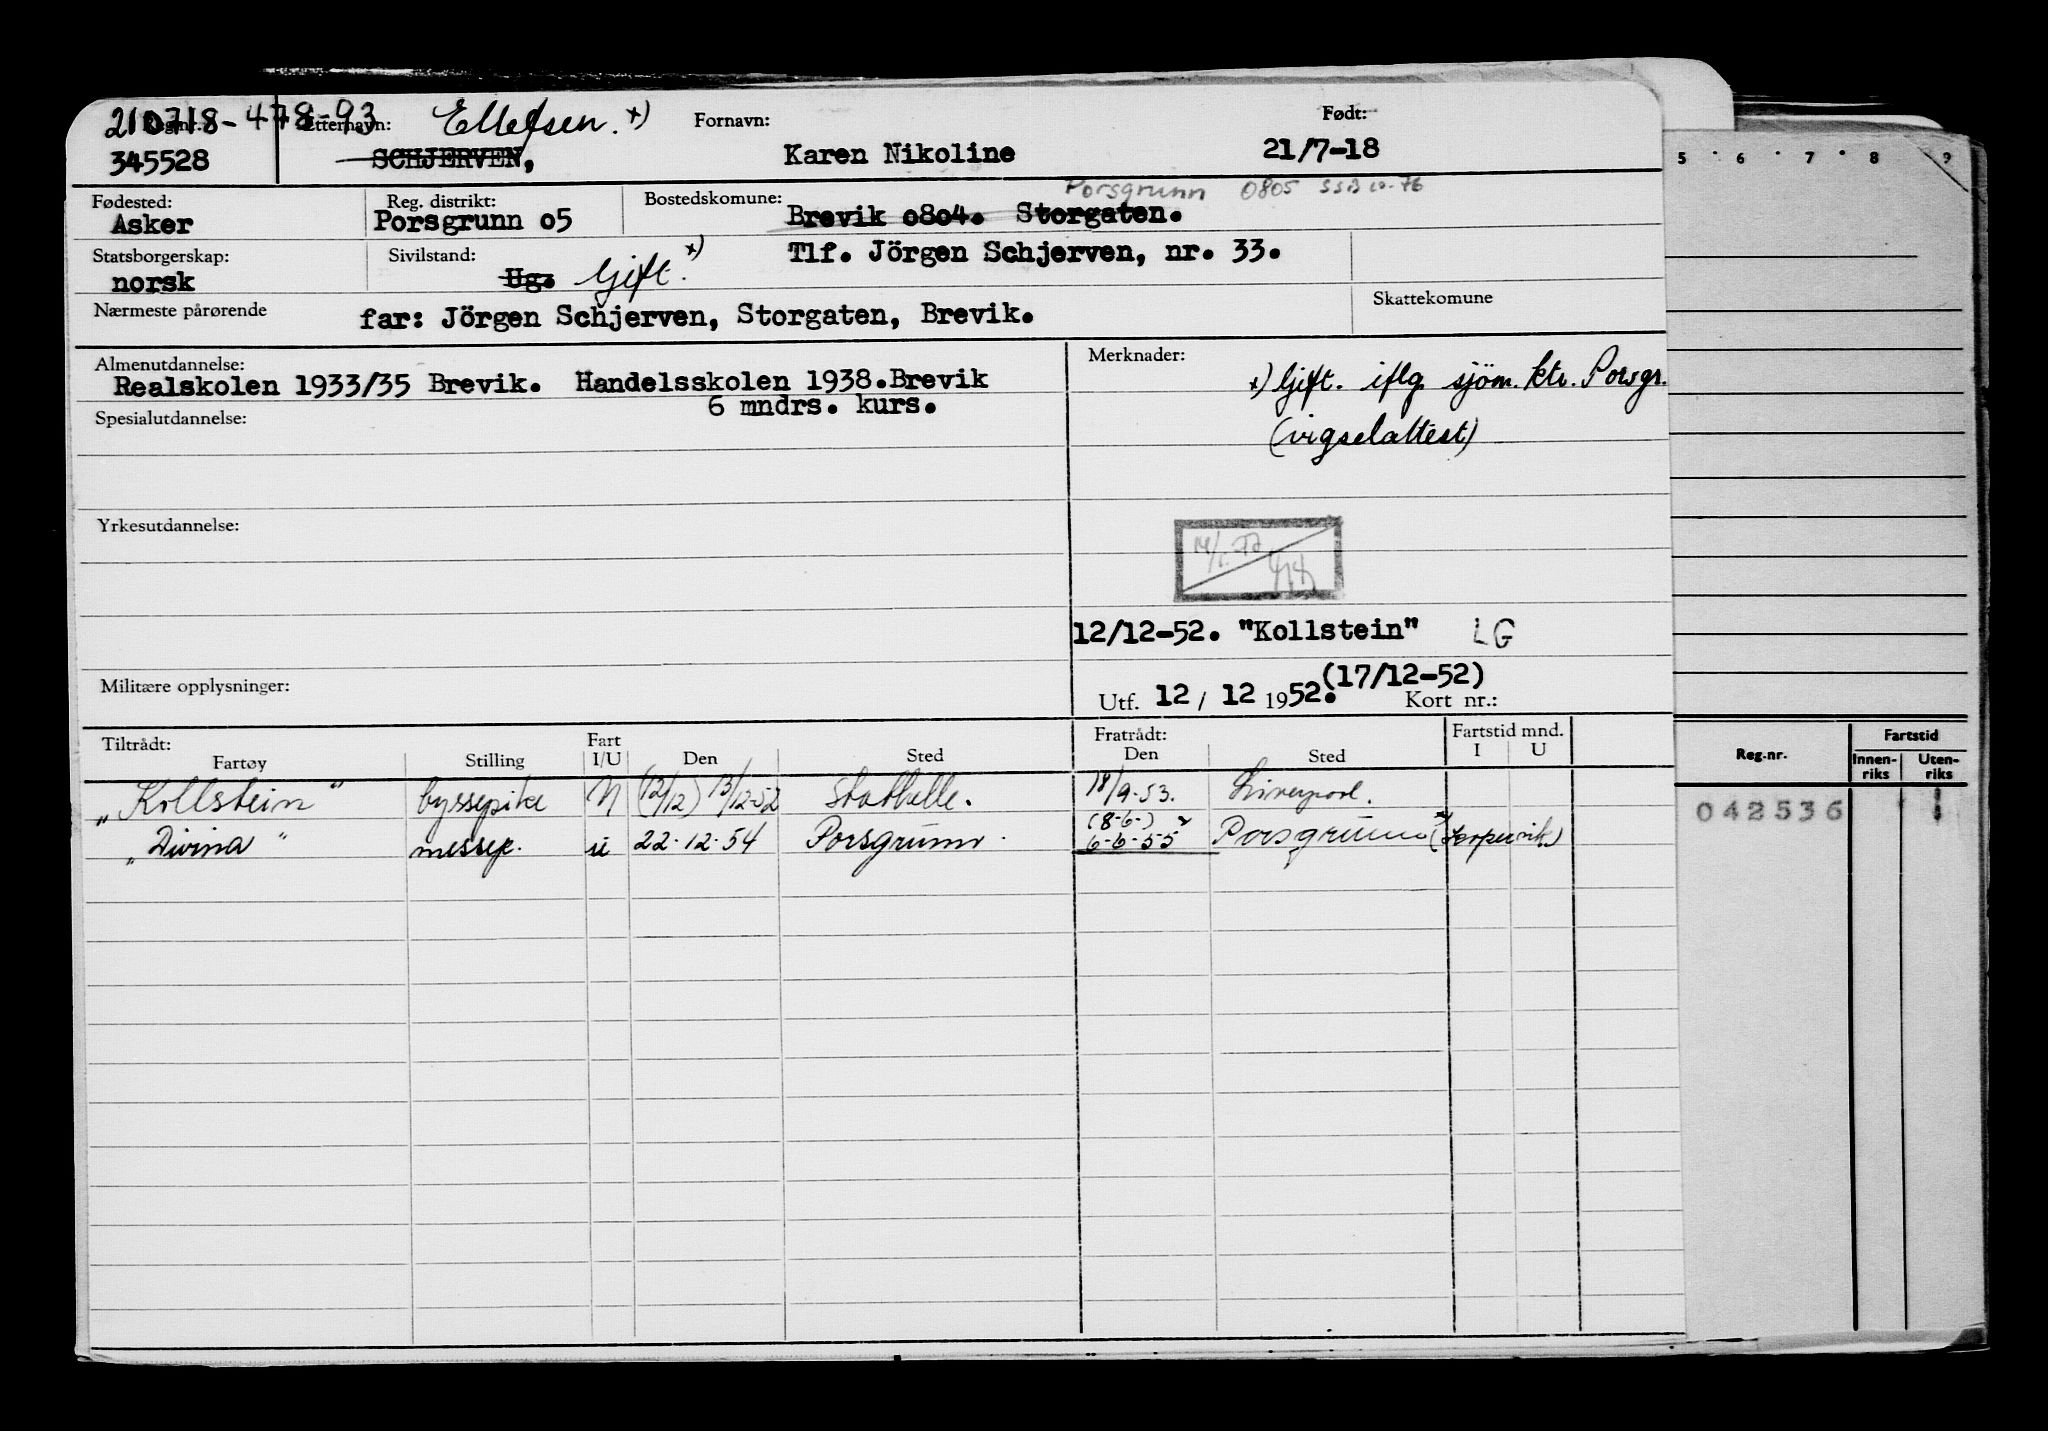 210718-478-93 Ellefsen. x)
Reg.nr.: Etternavn: Fornavn: Født:
345528 SCHJERVEN, Karen Nikoline 21/7-18
Porsgrunn 0805 SSB 10-76
Fødested: Reg. distrikt: Bostedskomune:
Asker Porsgrunn 05 Brevik 0804. Storgaten.
Statsborgerskap: Sivilstand: Tlf. Jörgen Schjerven, nr. 33.
norsk Ug. Gift. x)
Nærmeste pårørende far: Jörgen Schjerven, Storgaten, Brevik. Skattekomune
Almenutdannelse: Merknader:
Realskolen 1933/35 Brevik. Handelsskolen 1938. Brevik
6 mndrs. kurs.
x) Gift. iflg. sjöm. ktr. Porsgr.
(vigselattest)
Spesialutdannelse:
Yrkesutdannelse:
12/12-52. "Kollstein" LG
(17/12-52)
Militære opplysninger: Utf. 12 / 12 1952. Kort nr.:
Tiltrådt: Fart Fratrådt: Fartstid mnd.
Fartøy Stilling I/U Den Sted Den Sted I U
"Kollstein" byssepike U (12/12) 13/12-52 Stathelle. 18/9-53. Liverpool.
(8-6-)
"Divina" messep. u 22.12.54 Porsgrunn. 6-6-55 Porsgrunn (Herpervik)
5 . 6 . 7 . 8 . 9
Reg.nr. Fartstid
Innen-riks Uten-riks
042536